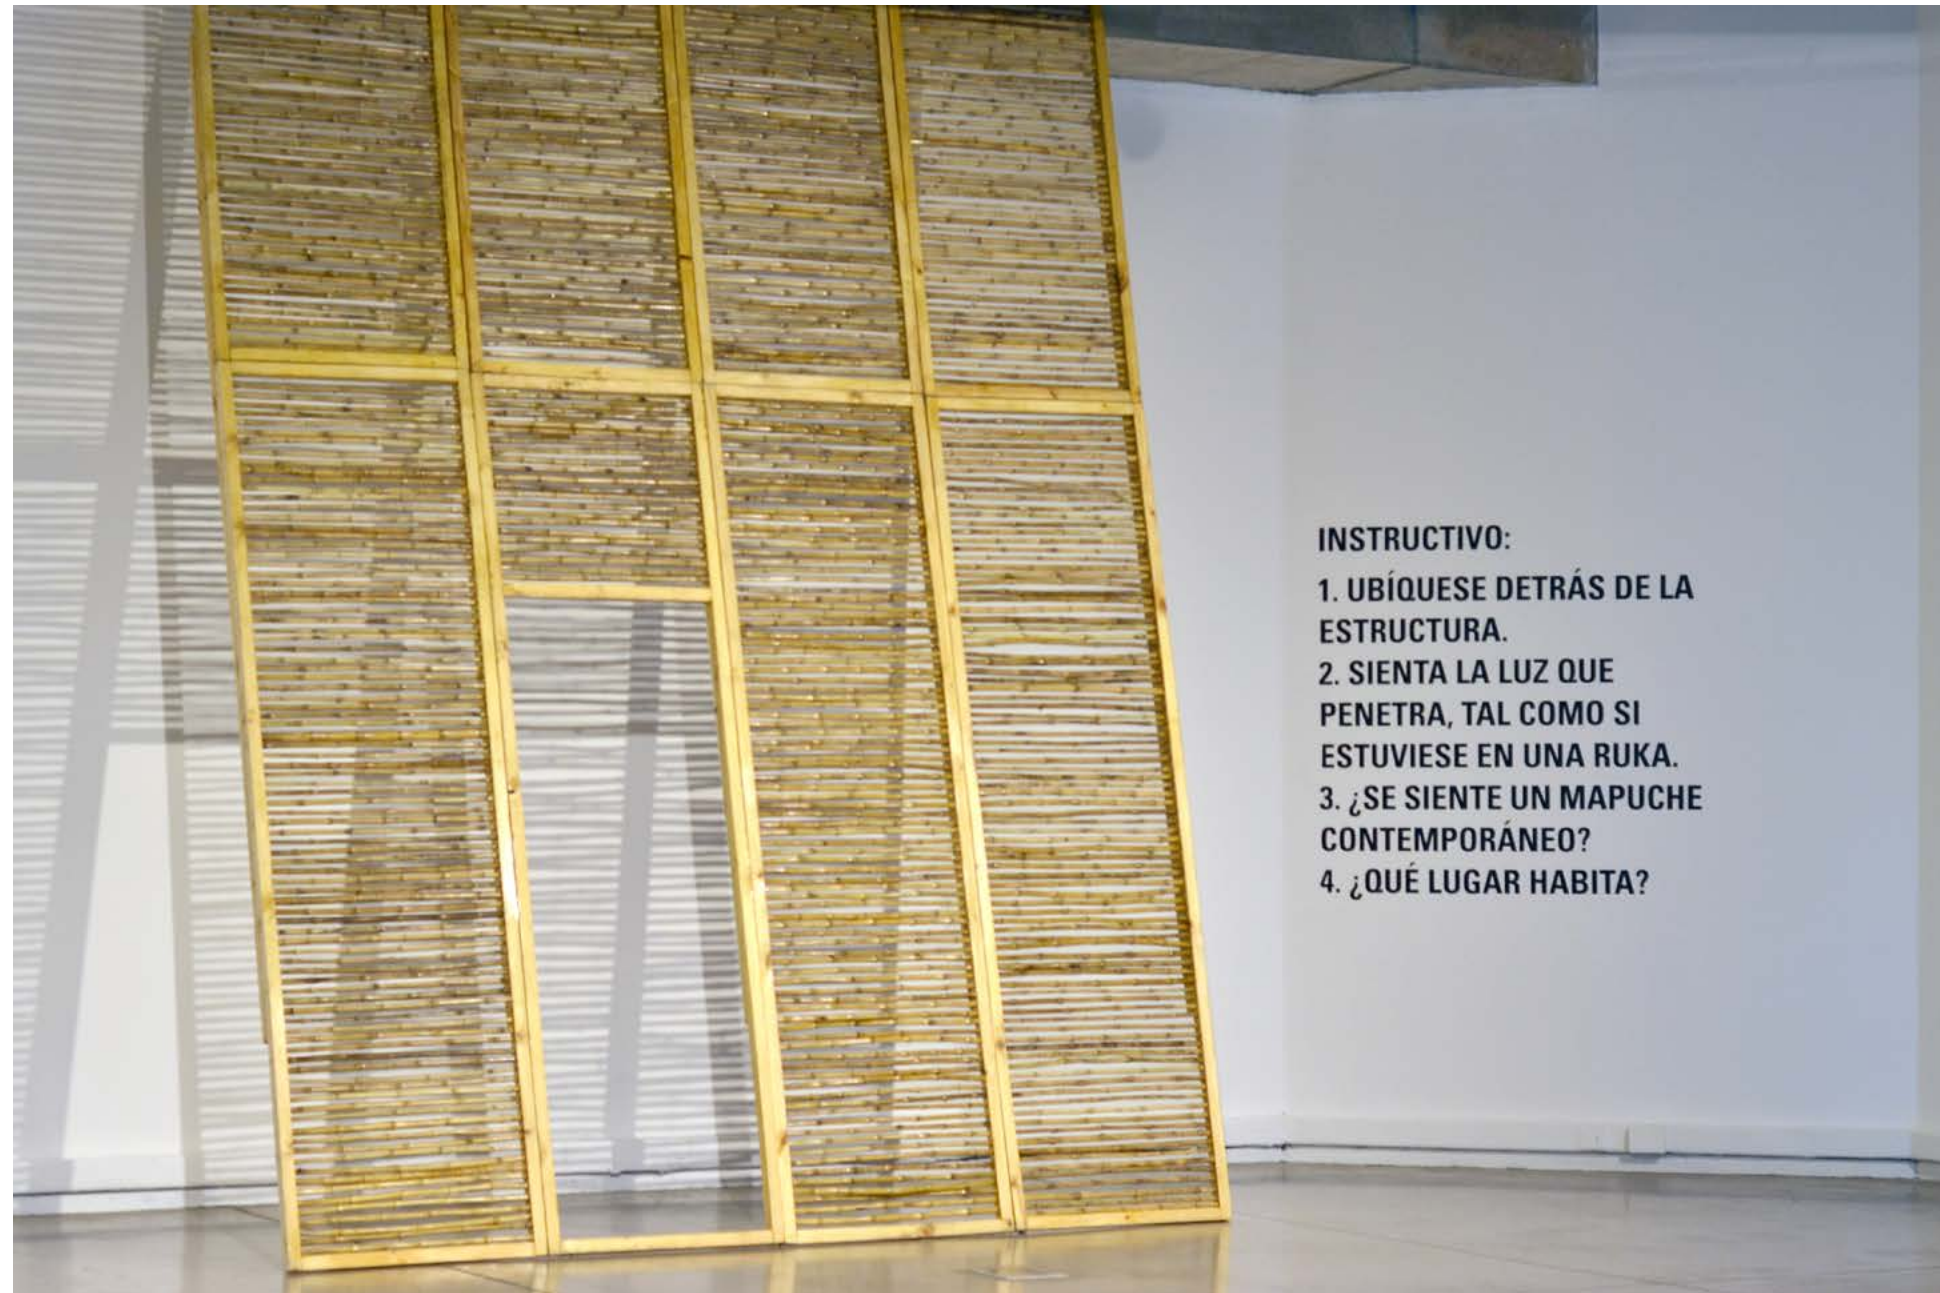 INSTRUCTIVO:
1. UBÍQUESE DETRÁS DE LA
ESTRUCTURA.
2. SIENTA LA LUZ QUE
PENETRA, TAL COMO SI
ESTUVIESE EN UNA RUKA.
3. ¿SE SIENTE UN MAPUCHE
CONTEMPORÁNEO?
4. ¿QUÉ LUGAR HABITA?